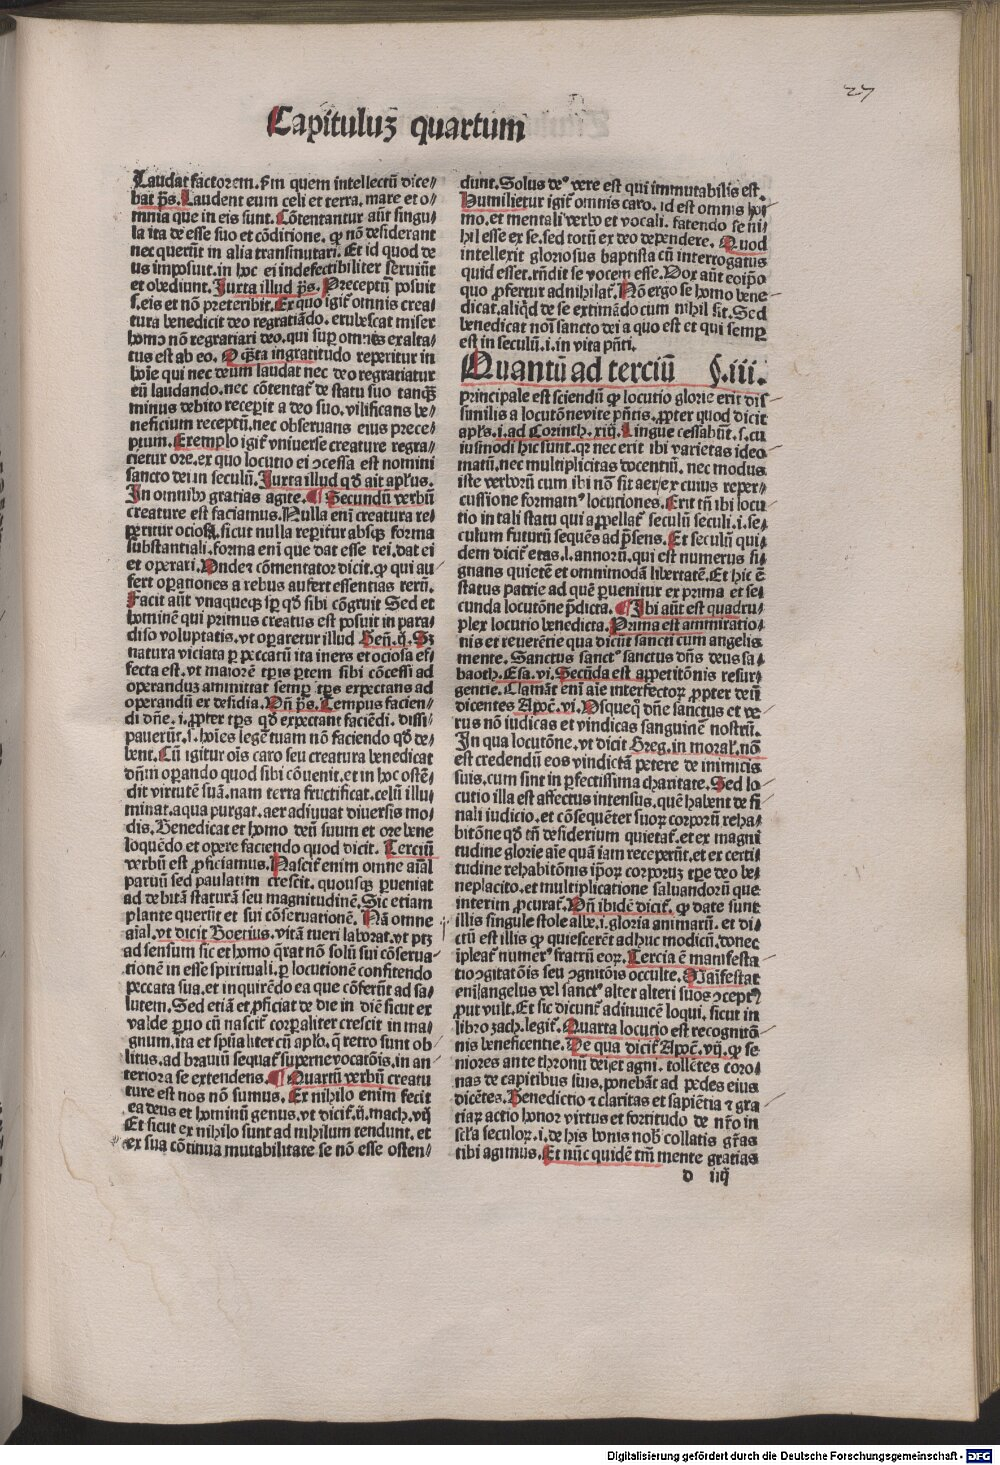 27
Capituluȝ quartum
Laudat factorem. ẜm quem intellectū dice⸗
bat p̄s. Laudent eum celi et terra. mare et o⸗
mnia que in eis sunt. Cōtentantur aūt singu⸗
la ita de esse suo et cōditione. ꝙ nō desiderant
nec querūt in alia transmutari. Et id quod de
us imposuit. in hoc ei indefectibiliter seruiūt
et obediunt. Juxta illud p̄s. Preceptū posuit
s. eis et nō preteribit. Ex quo igit̄ omnis crea⸗
tura benedicit deo regratiādo. erubescat miser
homo nō regratiari deo. qui suꝑ omnes exalta⸗
tus est ab eo. ingratitudo reperitur in
hoīe qui nec deum laudat nec deo regratiatur
eū laudando. nec cōtentat̄ de statu suo tanqꝫ
minus debito receperit a deo suo. vilificans be⸗
neficium receptū. nec obseruans eius prece⸗
ptum. Exemplo igit̄ vniuerse creature regra⸗
cietur ore. ex quo locutio ei ↄcessa est nomini
sancto dei in seculū. Juxta illud qd̄ ait apl̄us.
In omnibꝫ gratias agite. ¶ Secundū verbū
creature est faciamus. Nulla eni creatura re⸗
peritur ociosa. sicut nulla reperitur absqꝫ forma
substantiali. forma eni que dat esse rei. dat ei
et operari. Unde cōmentator dicit. ꝙ qui au⸗
fert oꝑationes a rebus aufert essentias rerū.
Facit aūt vnaqueqꝫ sp̄ qd̄ sibi cōgruit Sed et
hominē qui primus creatus est posuit in para⸗
diso voluptatis. vt oꝑaretur illud Gen̄. ij. Sꝫ
natura viciata ꝑ peccatū ita iners et ociosa ef⸗
fecta est. vt maiorē tꝑis ꝑtem sibi cōcessi ad
operandū ammittat semꝑ tꝑs expectans ad
operandū ex desidia. Vn̄ p̄s. Tempus facien⸗
di dn̄e. i. ꝓpter tꝑs qd̄ expectant faciēdi. dissi⸗
pauerūt. s. hoīes legē tuam nō faciendo qd̄ de⸗
bent. Cū igitur oīs caro seu creatura benedicat
dn̄m oꝑando quod sibi cōuenit. et in hoc ostē⸗
dit virtutē suā. nam terra fructificat. celū illu⸗
minat. aqua purgat. aer adiuuat diuersis mo⸗
dis. Benedicat et homo deū suum et ore bene
loquēdo et opere faciendo quod dicit. Terciū
verbū est ꝓficiamus. Nascit̄ enim omne aīal
paruū sed paulatim crescit. quousqꝫ ꝑueniat
ad debitā staturā seu magnitudinē. Sic etiam
plante querūt et sui cōseruationē. Nā omne
aīal. vt dicit Boetius. vitā tueri laborat. vt ptꝫ
ad sensum sic et homo q̄rat nō solū sui cōserua⸗
tionē in esse spirituali. ꝑ locutionē confitendo
peccata sua. et inquirēdo ea que cōferūt ad sa⸗
lutem. Sed etiā et ꝓficiat de die in diē sicut ex
valde ꝑuo cū nascit̄ corꝑaliter crescit in ma⸗
gnum. ita et spūaliter cū apl̄o. q̄ retro sunt ob⸗
litus. ad brauiū sequat̄ superne vocatōis. in an⸗
teriora se extendens. ¶ Quartū verbū creatu
ture est nos nō sumus. Ex nihilo enim fecit
ea deus et hominū genus. vt dicit̄. ij. mach. vij
Et sicut ex nihilo sunt ad nihilum tendunt. et
ex sua cōtinua mutabilitate se nō esse osten⸗
dunt. Solus deꝰ vere est qui immutabilis est.
Humilietur igit̄ omnis caro. id est omnis ho⸗
mo. et mentali verbo et vocali. fatendo se ni⸗
hil esse ex se. sed totū ex deo dependere. Quod
intellexit gloriosus baptista cū interrogatus
quid esset. rn̄dit se vocem esse. Vox aūt eoip̄o
quo ꝓfertur adnihilat̄. Nō ergo se homo bene⸗
dicat. aliqd̄ de se extimādo cum nihil sit. Sed
benedicat nomī sancto dei a quo est et qui semꝑ
est in seculū. i. in vita pn̄ti.
Quantū ad terciū §. iii.
principale est sciendū ꝙ locutio glorie erit dis⸗
similis a locutōne vite pn̄tis. ꝓpter quod dicit
apl̄s. i. ad Corinth. xiij. Lingue cessabūt. s. cu
iusmodi hic sunt. qꝛ nec erit ibi varietas ideo⸗
matū. nec multiplicitas docentiū. nec modus
iste verborū cum ibi nō sit aer. ex cuius reper⸗
cussione formanꝰ locutiones. Erit tn̄ ibi locu⸗
tio in tali statu qui appellat̄ seculū seculi. i. se⸗
culum futurū sequēs ad p̄sens. Et seculū qui⸗
dem dicit̄ etas. l. annorū. qui est numerus si⸗
gnans quietē et omnimodā libertatē. Et hic ē
status patrie ad quē ꝑuenitur ex prima et se⸗
cunda locutōne p̄dicta. ¶ Ibi aūt est quadru⸗
plex locutio benedicta. Prima est ammiratio⸗
nis et reuerētie qua dicūt sancti cum angelis
mente. Sanctus sanctꝰ sanctus dn̄s deus sa⸗
baoth. Esa. vi. Secūda est appetitōnis resur⸗
gentie. Clamāt eni aīe interfectoꝝ ꝓpter deū
dicentes Apoc̄. vi. Usquequo dn̄e sanctus et ve⸗
rus nō iudicas et vindicas sanguinē nostrū.
In qua locutōne. vt dicit Greg. in moral̄. nō
est credendū eos vindictā petere de inimicis
suis. cum sint in ꝑfectissima charitate. Sed lo⸗
cutio illa est affectus intensus. quē habent de fi
nali iudicio. et cōsequēter suoꝝ corporū reha⸗
bitōne qd̄ tn̄ desiderium quietat̄. et ex magni
tudine glorie aīe quā iam receperūt. et ex certi⸗
tudine rehabitōnis ip̄oꝝ corporuꝫ tꝑe deo be⸗
neplacito. et multiplicatione saluandorū que
interim ꝓcurat̄. Vn̄ ibidē dicit̄. ꝙ date sunt
illis singule stole albe. i. gloria animarū. et di⸗
ctū est illis ꝙ quiescerēt adhuc modicū. donec
īpleat̄ numerꝰ fratrū eoꝝ. Tercia ē manifesta⸗
tio ↄgitatōis seu ↄgnitōnis occulte. Manifestat
eni angelus vel sanctꝰ alter alteri suos ↄceptꝰ
ꝓut vult. Et sic dicunt̄ adinuicē loqui. sicut in
libro zach. legit̄. Quarta locutio est recognitō⸗
nis beneficentie. De qua dicit̄ Apoc̄. vij. ꝙ se⸗
niores ante thronū dei et agni. tollētes coro⸗
nas de capitibus suis. ponebāt ad pedes eius
dicētes. Benedictio ⁊ claritas et sapiētia ⁊ gra
tiaꝝ actio honor virtus et fortitudo deo nr̄o in
scl̄a seculoꝝ. i. de his bonis nob̄ collatis gr̄as
tibi agimus. Et nūc quidē tm̄ mente gratias
d iij
Digitalisierung gefördert durch die Deutsche Forschungsgemeinschaft - DFG